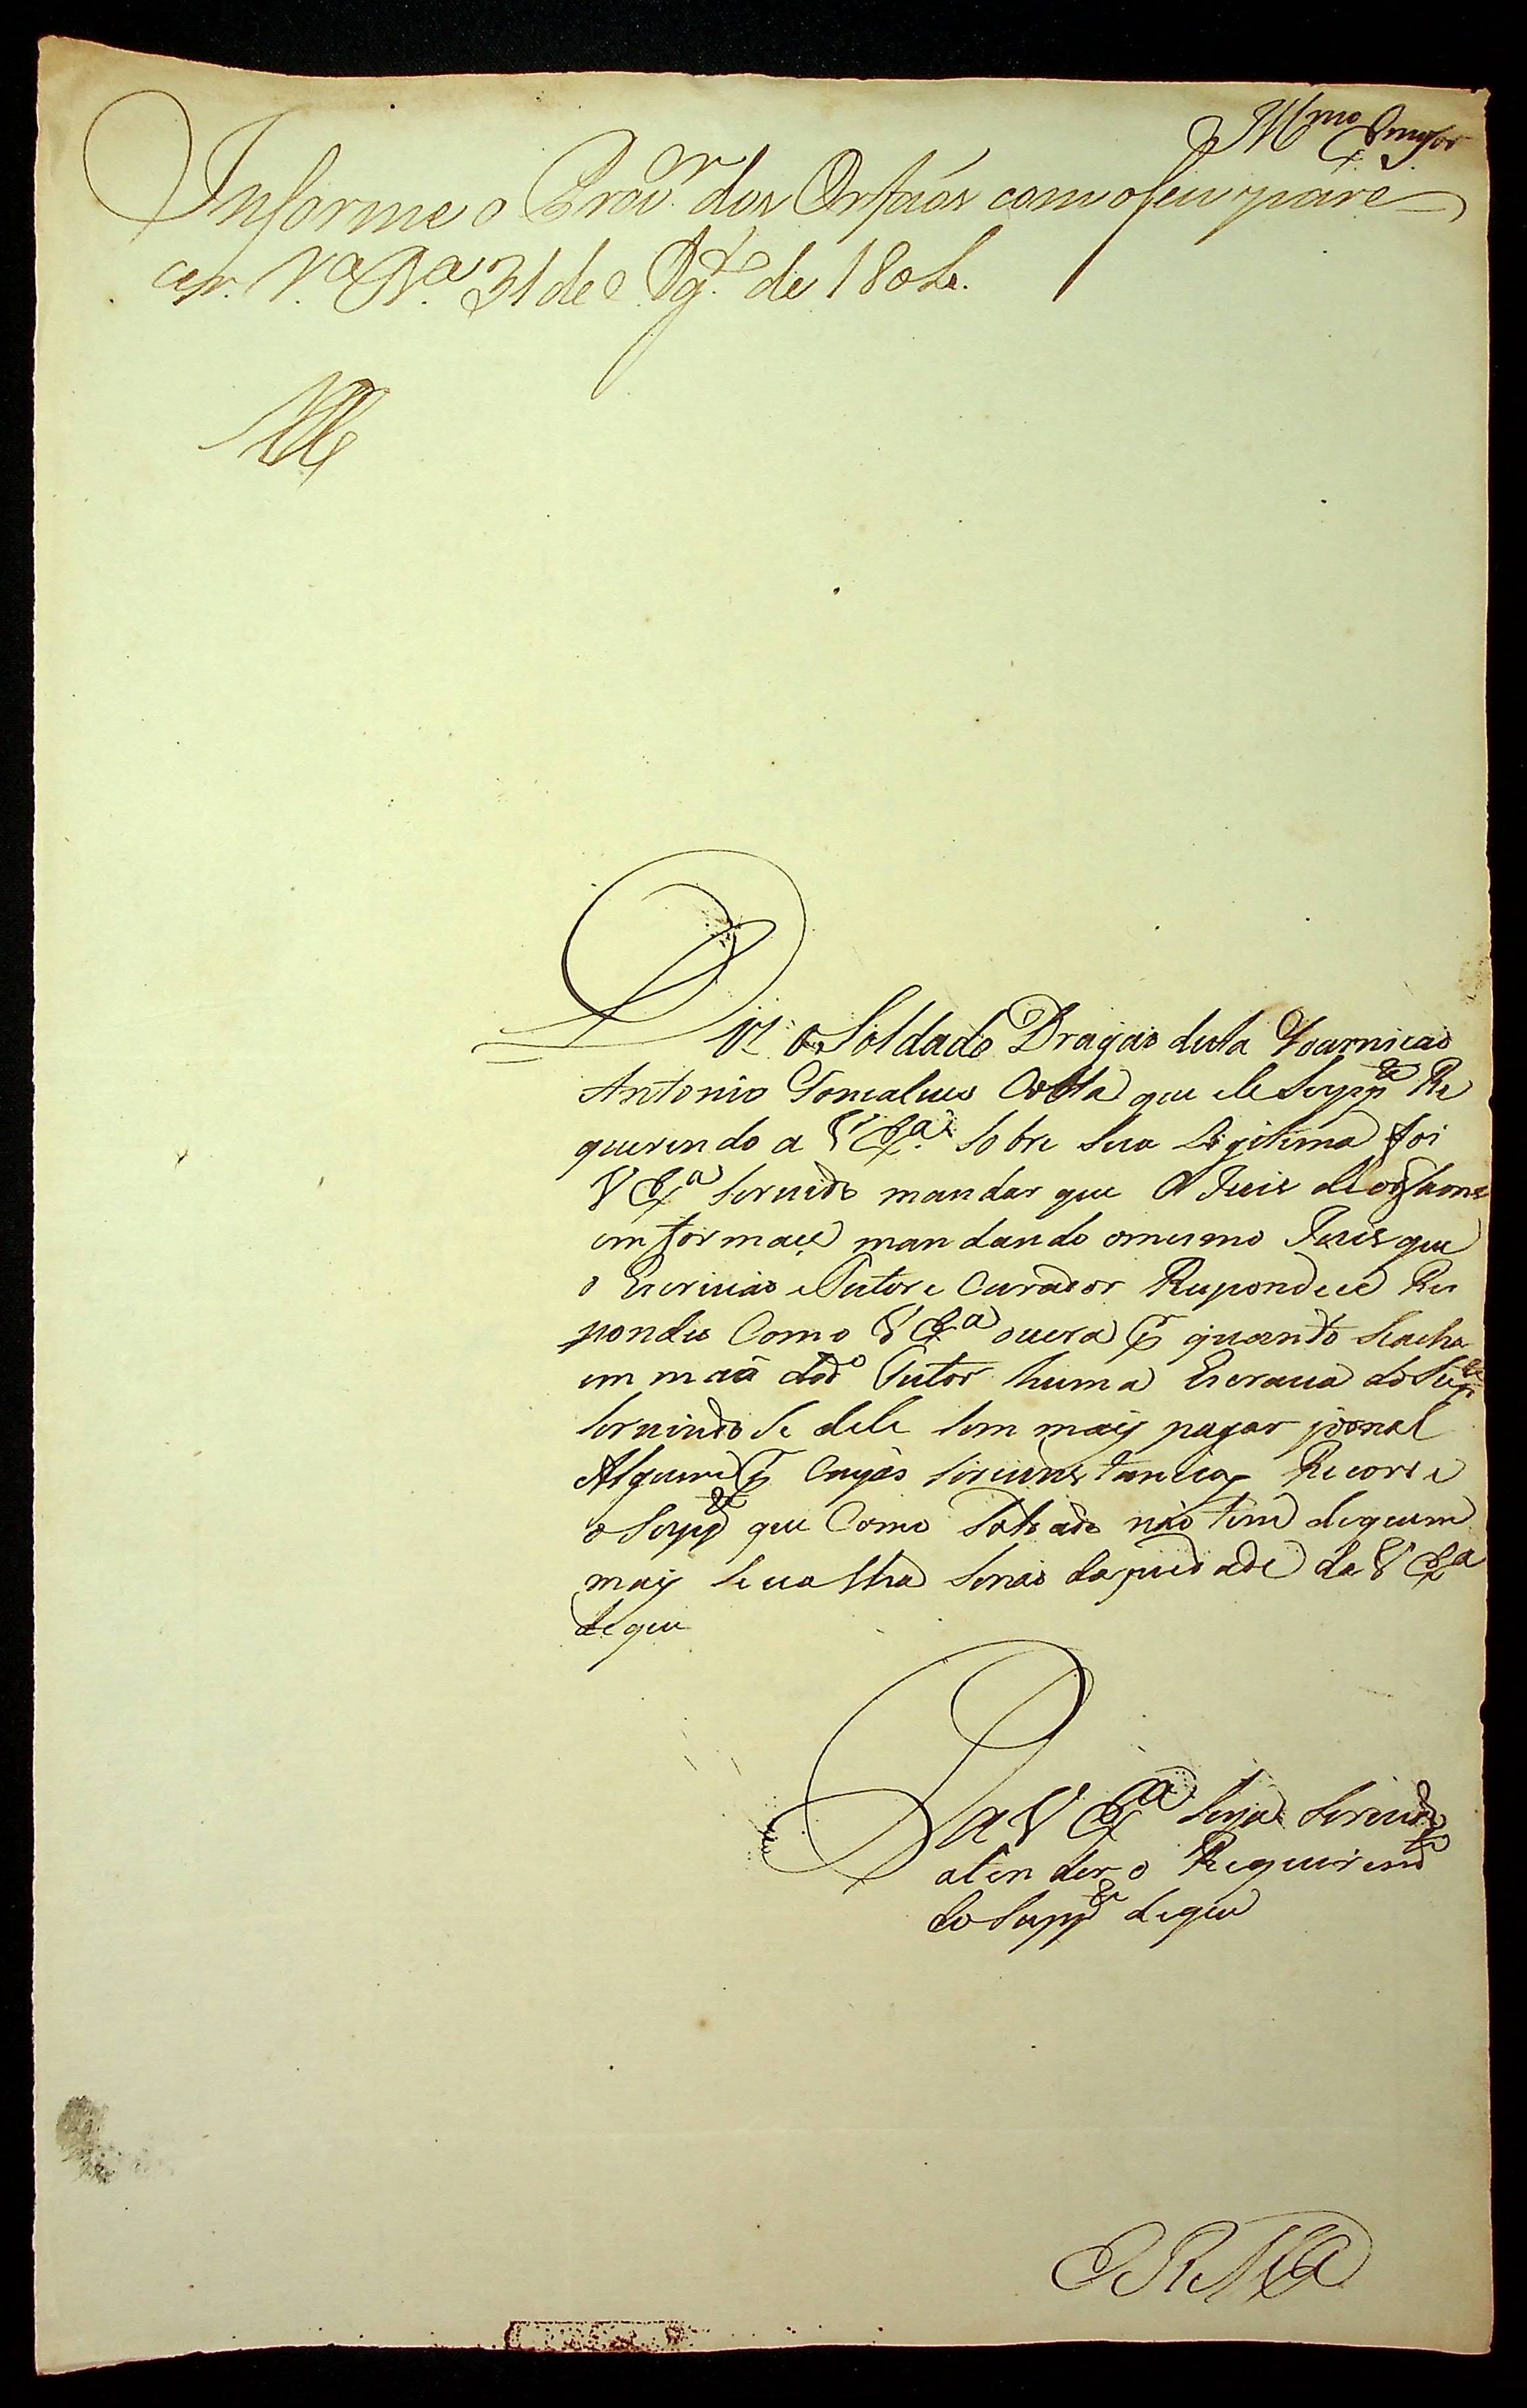 Illmo Exmo Snor
Informe o Prov.or dos Orfaós com o seu pare-
cer. V.a B.a 31 de Ag.to de 180
Diz o Soldado Dragaõ desta Goarnicaõ
Antonio Goncalves Costa que ele Supp.e Re
querendo a V Ex.a sobre sua Legitima foi
V Ex.a servido mandar que O Juis de orfaons
imformace mandando omesmo Juis que
o Escrivaõ e Tutor e Curador Respondece Res
pondeo Como V Ex.a vera quanto seacha
em maõ do d.o Tutor huma Escrava do Sup.e
servindo se dele sem mais pagar jornal
Algum cujas sircunstancias Recorre
o Supp.e que Como Soldado naõ tem dequem
mais se valha senaõ da piedade de V Ex.a
de que
P a V Ex.a seja servido
atender o Requirim.to
do Supp.e deque
E R M.ce